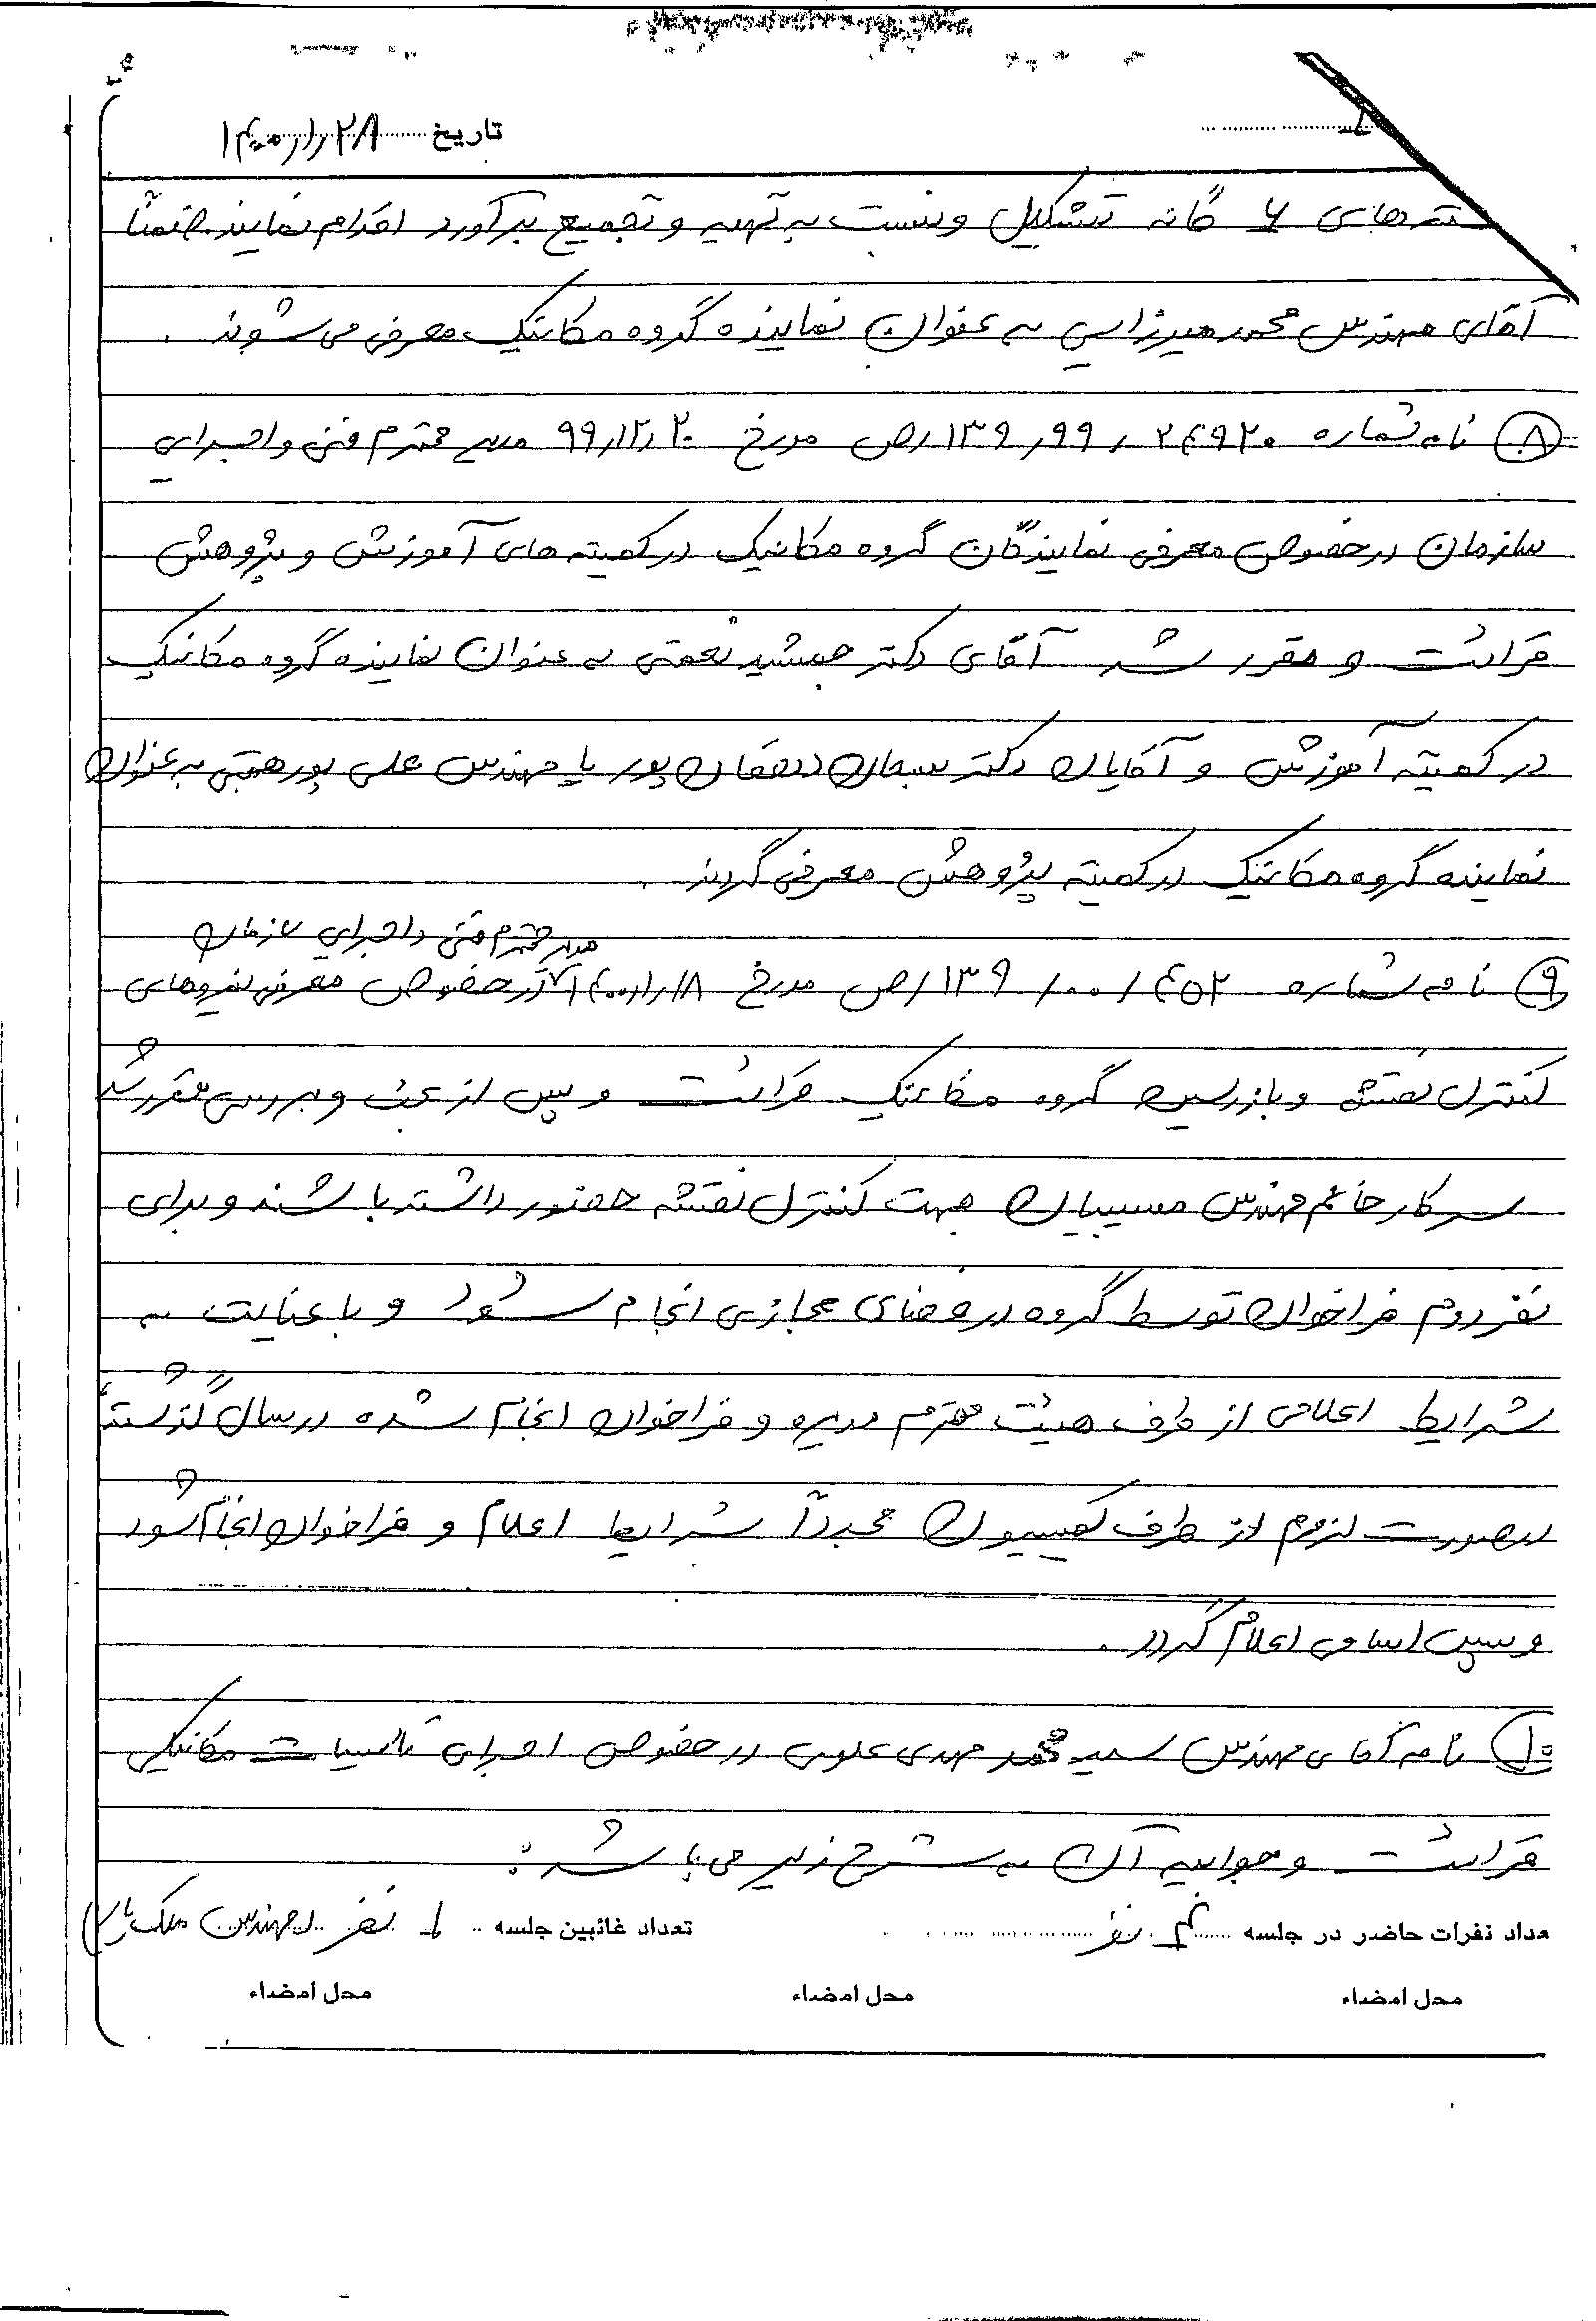 تاریخ ۱۴۰۰/۱/۲۸
ته‌های ۶ گانه تشکیل و نسبت به تهیه و تجمیع برآورد اقدام نمایند. ضمناً
آقای مهندس محمد میرزایی به عنوان نماینده گروه مکانیک معرفی می شوند .
۸ نامه شماره ۲۴۹۲۰/۹۹/۱۳۹/ص مورخ ۹۹/۱۲/۲۰ مدیر محترم فنی و اجرایی
سازمان در خصوص معرفی نمایندگان گروه مکانیک در کمیته های آموزش و پژوهش
قرائت و مقرر شد آقای دکتر جمشید نعمتی به عنوان نماینده گروه مکانیک
در کمیته آموزش و آقایان دکتر سبحان دهقان پور یا مهندس علی پورهمتی به عنوان
نماینده گروه مکانیک در کمیته پژوهش معرفی گردند .
مدیر محترم فنی و اجرایی سازمان
۹ نامه شماره ۴۵۲/۰۰/۱۳۹/ص مورخ ۱۴۰۰/۱/۱۸ در خصوص معرفی نیروهای
کنترل نقشه و بازرسین گروه مکانیک قرائت و پس از بحث و بررسی مقرر شد
سرکار خانم مهندس مسیبیان جهت کنترل نقشه حضور داشته باشند و برای
نفر دوم فراخوان توسط گروه در فضای مجازی انجام شود و با عنایت به
شرایط اعلامی از طرف هیئت محترم مدیره و فراخوان انجام شده در سال گذشته
در صورت لزوم از طرف کمیسیون مجدداً شرایط اعلام و فراخوان انجام شود
و سپس اسامی اعلام گردد .
۱۰ نامه آقای مهندس سید محمد مهدی علوی در خصوص اجرای تاسیسات مکانیکی
قرائت و جوابیه آن به شرح زیر می باشد :
عداد نفرات حاضر در جلسه ۴ نفر تعداد غائبین جلسه ۱ نفر (مهندس
محل امضاء محل امضاء محل امضاء